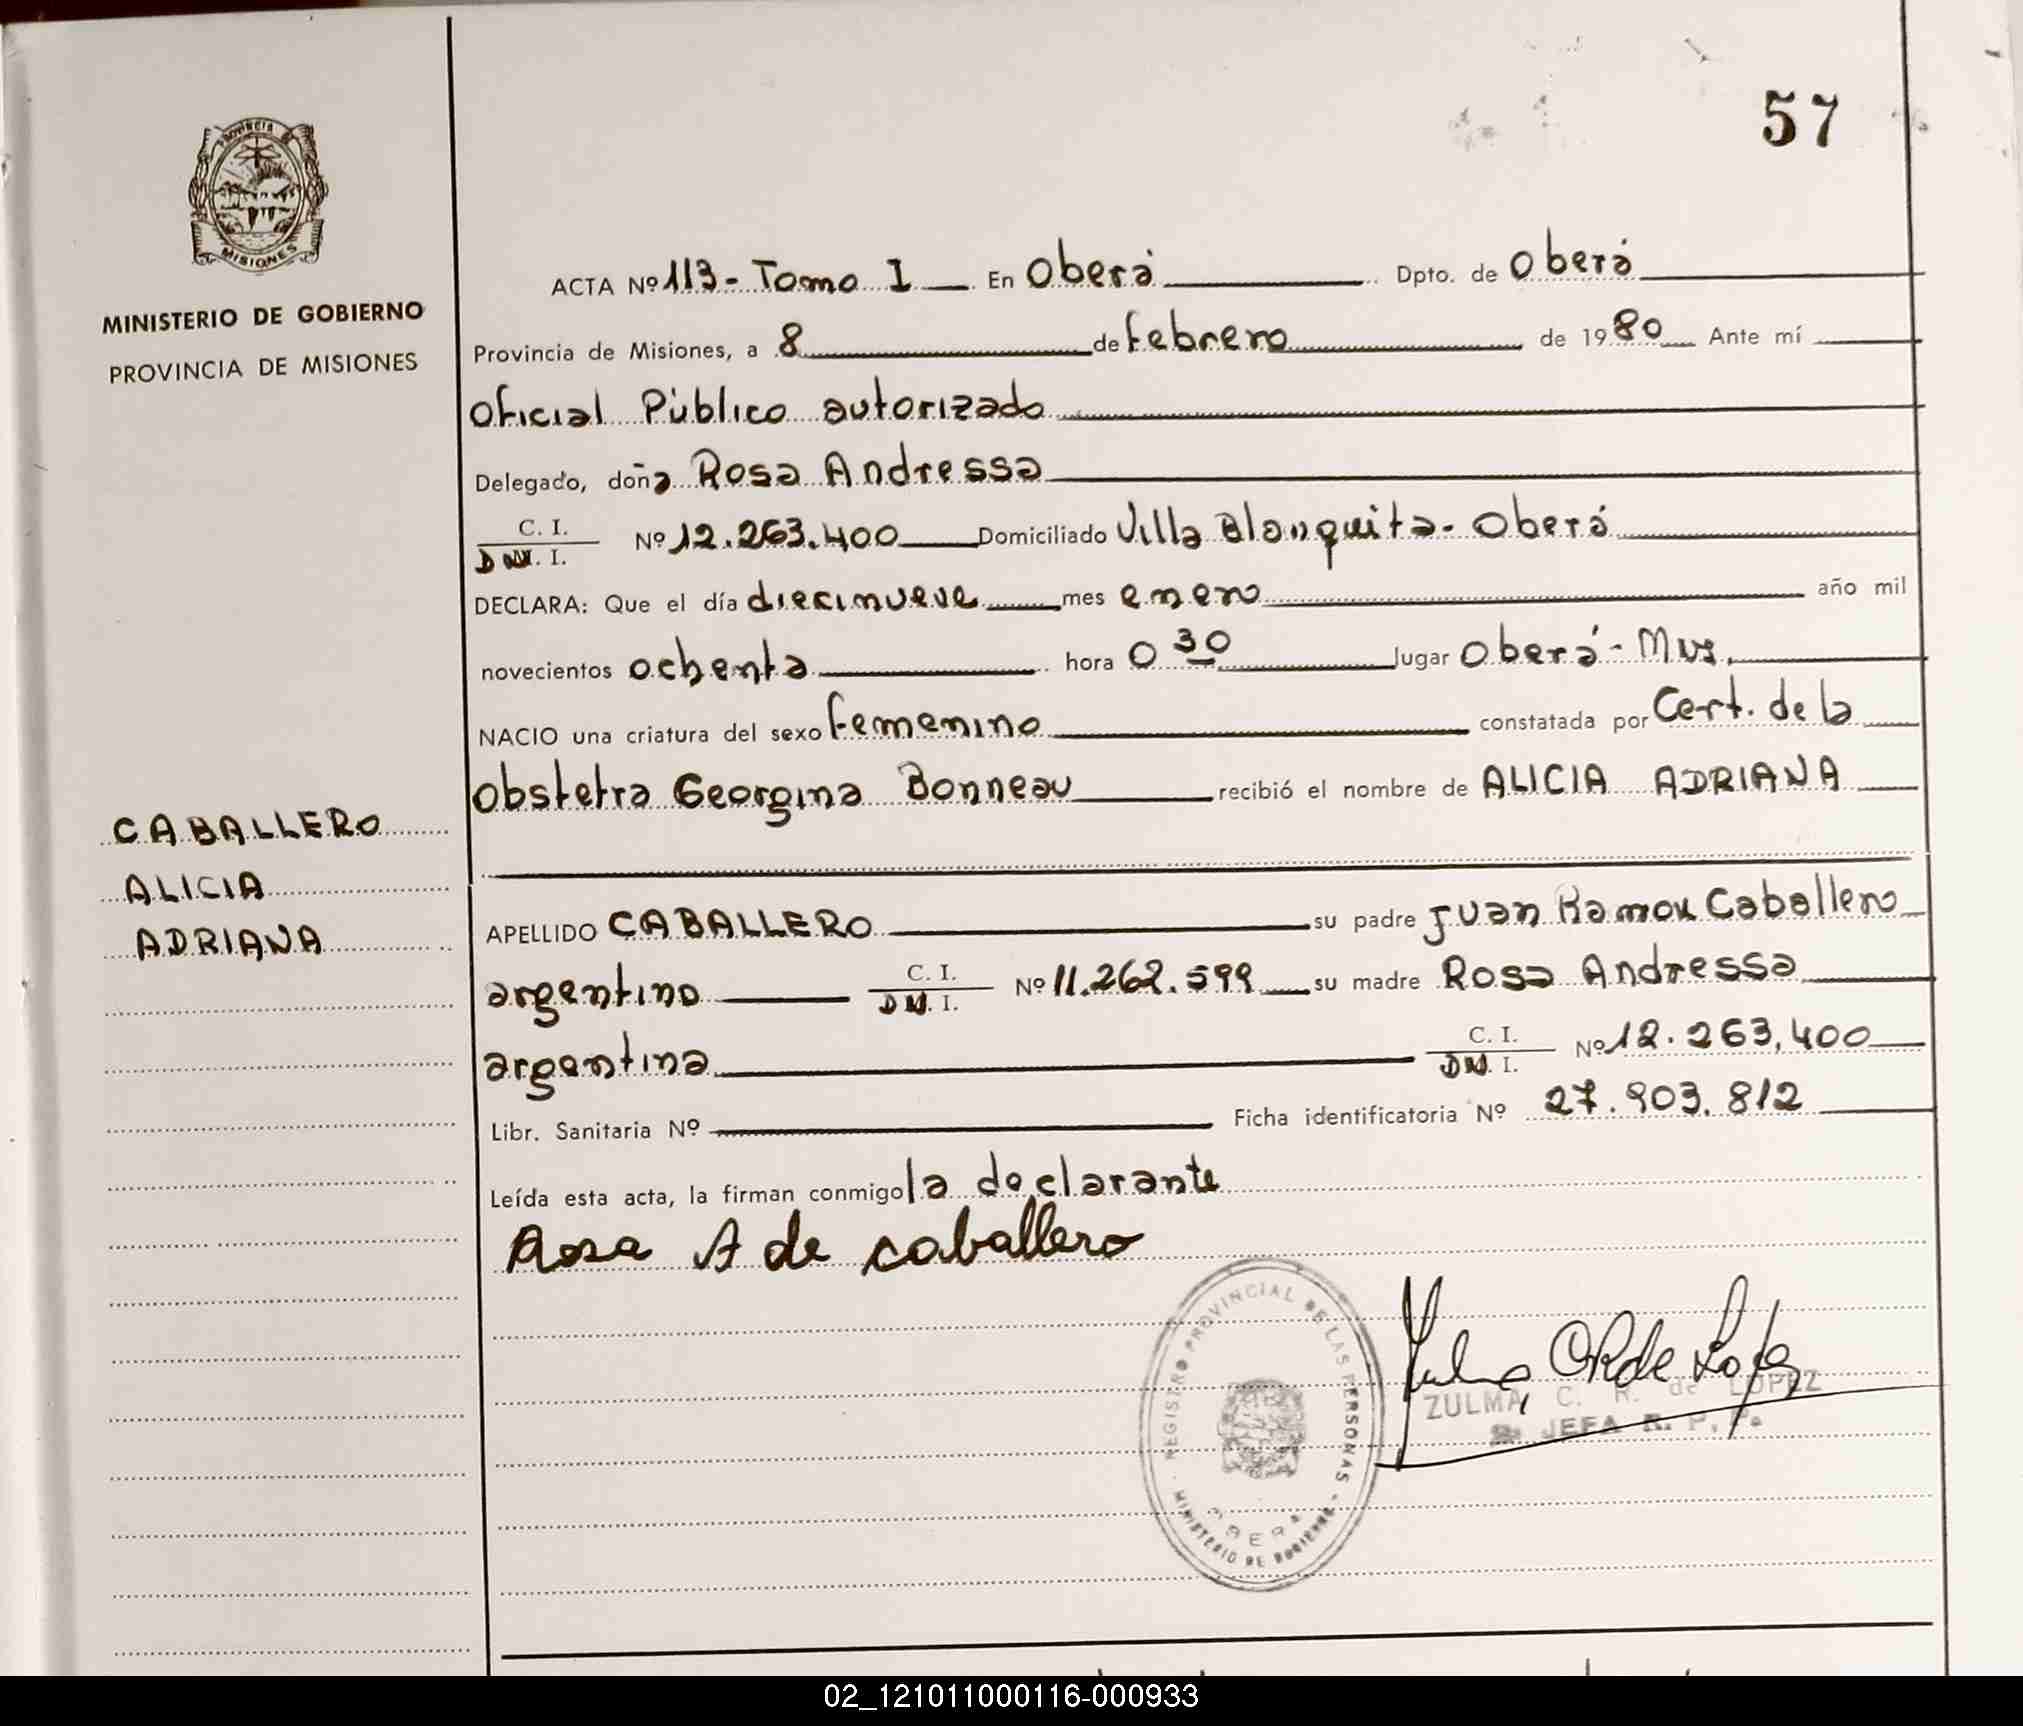 57
PROVINCIA DE
MISIONES
MINISTERIO DE GOBIERNO
PROVINCIA DE MISIONES
ACTA Nº 113 - Tomo I En Oberá Dpto. de Oberá
Provincia de Misiones, a 8 de febrero de 1980 Ante mí
Oficial Público autorizado
Delegado, doña Rosa Andressa
C. I.
D N. I. Nº 12.263.400 Domiciliado Villa Blanquita - Oberá
DECLARA: Que el día diecinueve mes enero año mil
novecientos ochenta hora 0 30 lugar Oberá - Mns.
NACIO una criatura del sexo femenino constatada por Cert. de la
Obstetra Georgina Bonneau recibió el nombre de ALICIA ADRIANA
CABALLERO
ALICIA
ADRIANA
APELLIDO CABALLERO su padre Juan Ramon Caballero
argentino C. I.
D N. I. Nº 11.262.599 su madre Rosa Andressa
argentina C. I.
D N. I. Nº 12.263.400
Libr. Sanitaria Nº Ficha identificatoria Nº 27.903.812
Leída esta acta, la firman conmigo la declarante
Rosa A de caballero
REGISTRO PROVINCIAL DE LAS PERSONAS - MINISTERIO DE GOBIERNO
OBERA
ZULMA C. R. de LOPEZ
JEFA R. P. P.
02_121011000116-000933